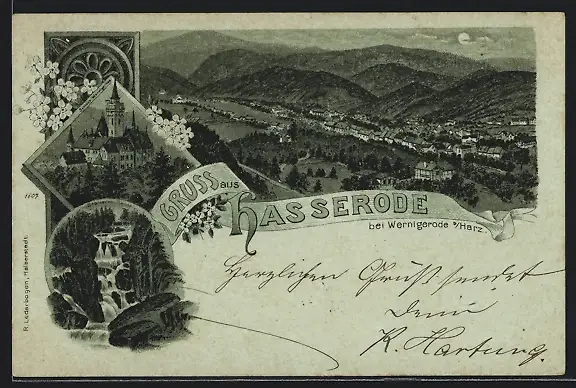 GRUSS aus
HASSERODE
bei Wernigerode a/Harz.
1607.
R. Lederbogen, Halberstadt.
Herzlichen Gruß sendet
Dein
R. Hartung.